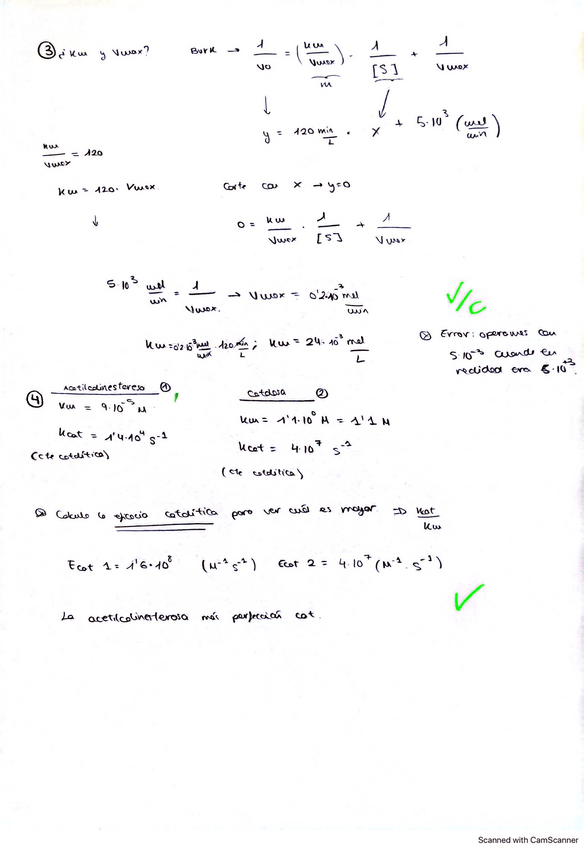 ③ ¿Km y Vmax? Burk → 1/Vo = (Km/Vmax) · 1/[S] + 1/Vmax
m
y = 120 min/L · x + 5·10³ (mol/min)
Km/Vmax = 120
Km = 120 · Vmax Corte con x → y=0
0 = Km/Vmax · 1/[S] + 1/Vmax
5·10³ mol/min = 1/Vmax. → Vmax = 0'2·10⁻³ mol/min
√/c
Km = 0'2·10⁻³ mol/min · 120 min/L ; Km = 24·10⁻³ mol/L
Error: operamos con
5·10⁻³ cuando en
realidad era 5·10⁺³.
④ Acetilcolinesterasa ① Catalasa ②
Km = 9·10⁻⁵ M Km = 1'1·10⁰ M = 1'1 M
Kcat = 1'4·10⁴ s⁻¹ Kcat = 4·10⁷ s⁻¹
(cte catalítica) (cte catalítica)
Calculo la eficacia catalítica para ver cuál es mayor ⇒ Kcat/Km
Ecat 1 = 1'6·10⁸ (M⁻¹ s⁻¹) Ecat 2 = 4·10⁷ (M⁻¹ · s⁻¹)
La acetilcolinesterasa más perfección cat.
Scanned with CamScanner